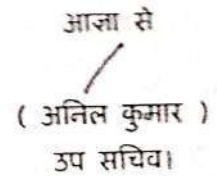 आज्ञा से
( अनिल कुमार )
उप सचिव।